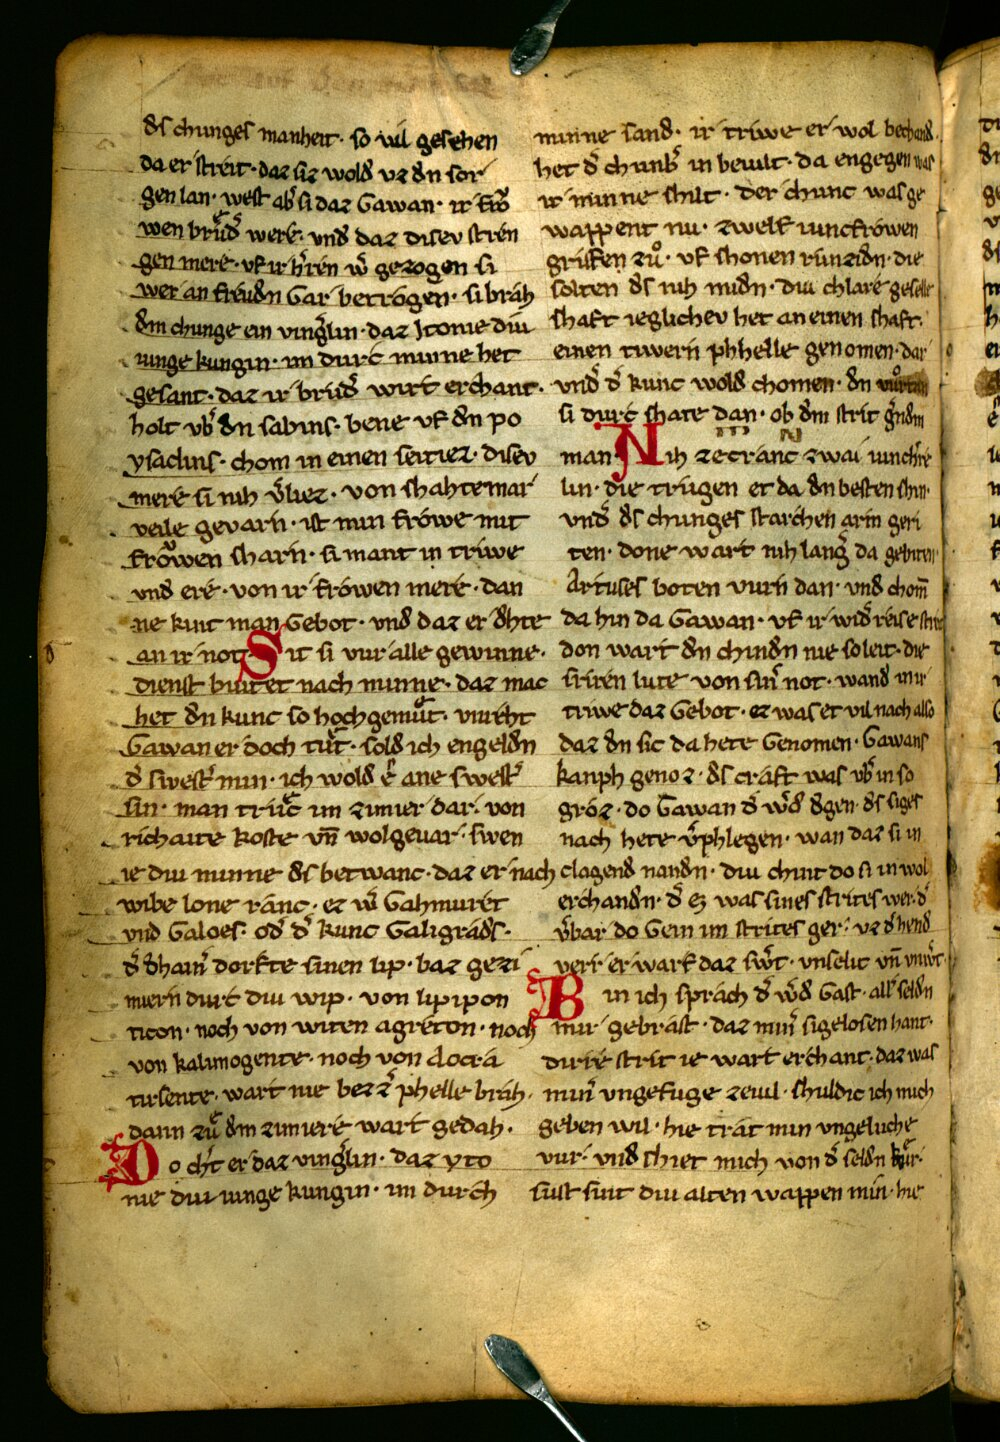 ds chunges manheit · so wil gesehen
da er streit · daz siz wold uz dn sor
gen lan · west abˀ si daz Gawan · ir frͦo
wen brͮudˀ were · und daz disev stren
gen mere · uf ir hˀren wˀ gezogen si
wer an freudn Gar betrogen · si brah
dm chunge ein vingˀlin · daz Jtonie diu
iunge kungin · im durc minne het
gesant · daz ir brudˀ wirt erchant ·
holt ubˀ dn sabins · bene uf dn po
ysachins · chom in einen seitiez · disev
mere si nih vˀliez · von shahtemar
veile gevarn · ist min frowe mit
frͦowen sharn · si mant in triwe
und ere · von ir frowen mere · dan
ne kint man Gebot · und daz er dhte
an ir not Sit si vur alle gewinne ·
dienst biutet nach minne · daz mac
het dn kunc so hochgemͮut · unreht
Gawan er doch tͮut · sold ich engeldn
dˀ swestˀ min · ich wold ê ane swestˀ
sin · man trͮuc im zimier dar · von
richaite koste vn̄ wolgevar · swen
ie diu minne ds betwanc · daz er nach
wibe lone ranc · ez wˀ Gahmuret
und Galoes · odˀ dˀ kunc Galigrads ·
dˀ dhainˀ dorfte sinen lip · baz gezi
miern durc diu wip · von lipipon
ticon · noch von witen agreton · noch
von kalimogente · noch von Aocra
tirsente · wart nie bezzˀ phelle brah ·
dann zͮu dm zimiere wart gedah ·
Do chˀt er daz vingˀlin · daz yto
nie diu iunge kungin · im durch
minne sand · ir triwe er wol bechand ·
het dˀ chunbˀ in bevilt · da engegen was
ir minne shilt · der chunc was ge
wappent nu · zwelf iuncfrowen
griffen zͮu · uf shonen runzidn · die
solten ds nih midn · diu chlare geselle
shaft ieglichev het an einen shaft ·
einen tiwern phhelle genomen · dar
undˀ dˀ kunc wold chomen · dn vͮurtn
si durc shate dan · ob dm strit gˀndm
man · Nih ze cranc zwai iunchˀre
lin · die trugen et da dn besten shin ·
undˀ ds chunges starchen arm geri
ten · done wart nih langˀ da gebiten ·
Artuses boten vurn dan · und chom̄
da hin da Gawan · uf ir widˀreise strit
don wart dn chindn nie so leit · die
sriren lute von sinˀ not · wand in ir
triwe daz Gebot · ez was et vil nach also
daz dn sic da hete Genomen · Gawans
kanph genoz · ds craft was ubˀ in so
groz · do Gawan dˀ wˀd dgen · ds siges
nach hete vˀphlegen · wan daz si in
clagend nandn · diu chint do si in wol
erchandn · dˀ ez was sines strites wer · dˀ
vˀbar do Gein im strites ger · uz dˀ hend
verr er warf daz swˀt · unselic vn̄ unwˀt ·
Bin ich sprach dˀ wˀd Gast · allˀ seldn
mir gebrast · daz minˀ sigelosen hant ·
dirre strit ie wart erchant · daz was
minˀ ungefuge zevil · shuldic ich mich
geben wil · hie trat min ungeluche
vur · und shiet mich von dˀ seldn kͮur ·
sust sint diu alten wappen min · hie